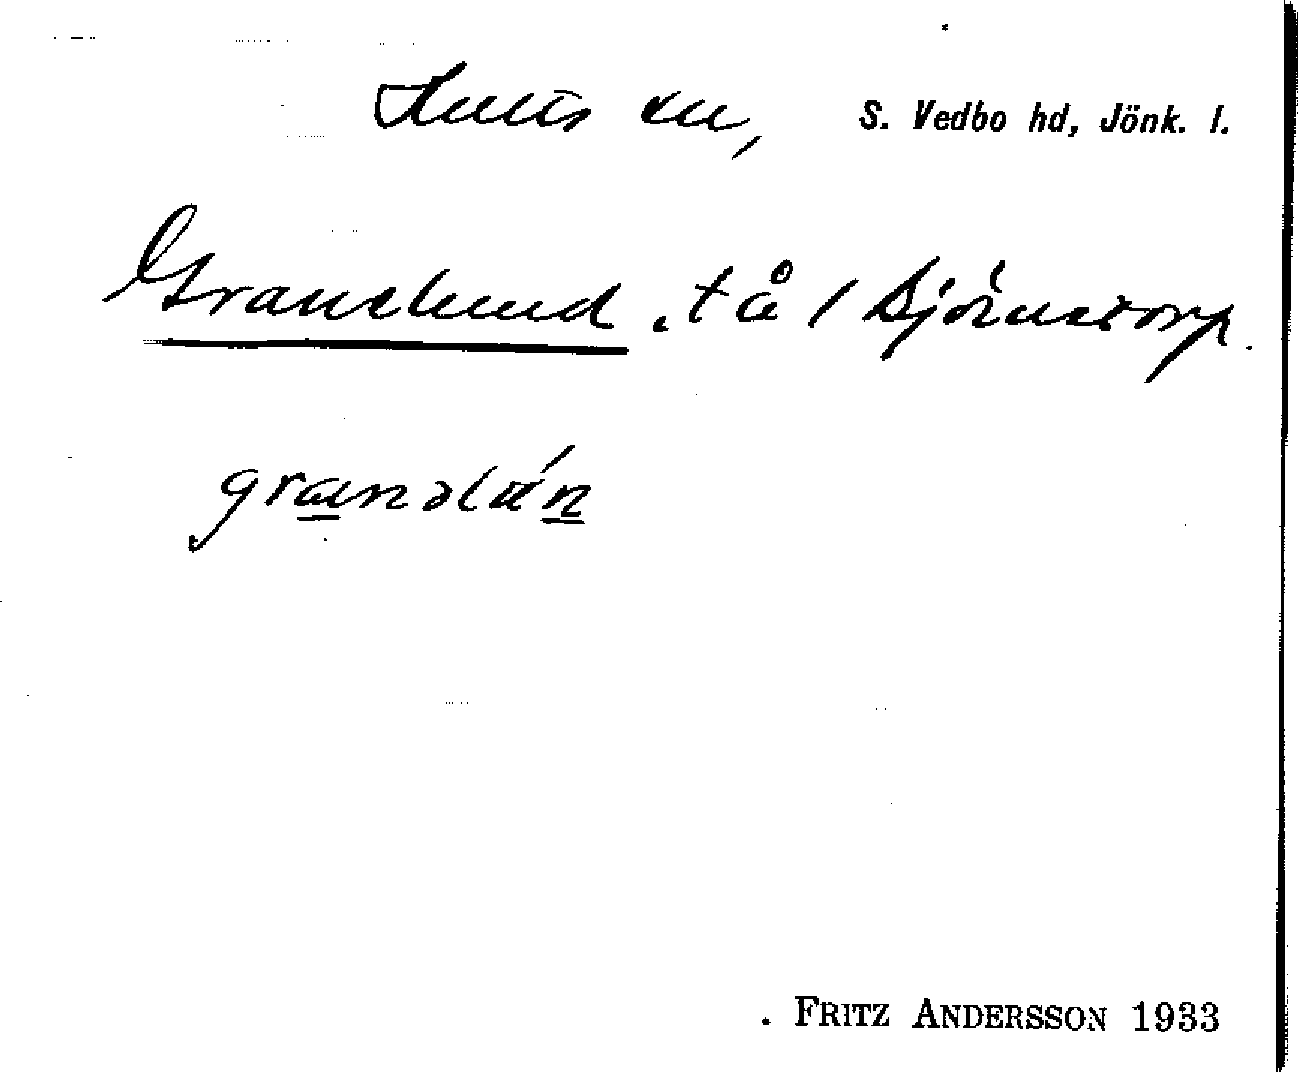 Hults sn, S. Vedbo hd, Jönk. l.
Granelund. tå / Björnstorp.
granəlu̇́n
. FRITZ ANDERSSON 1933